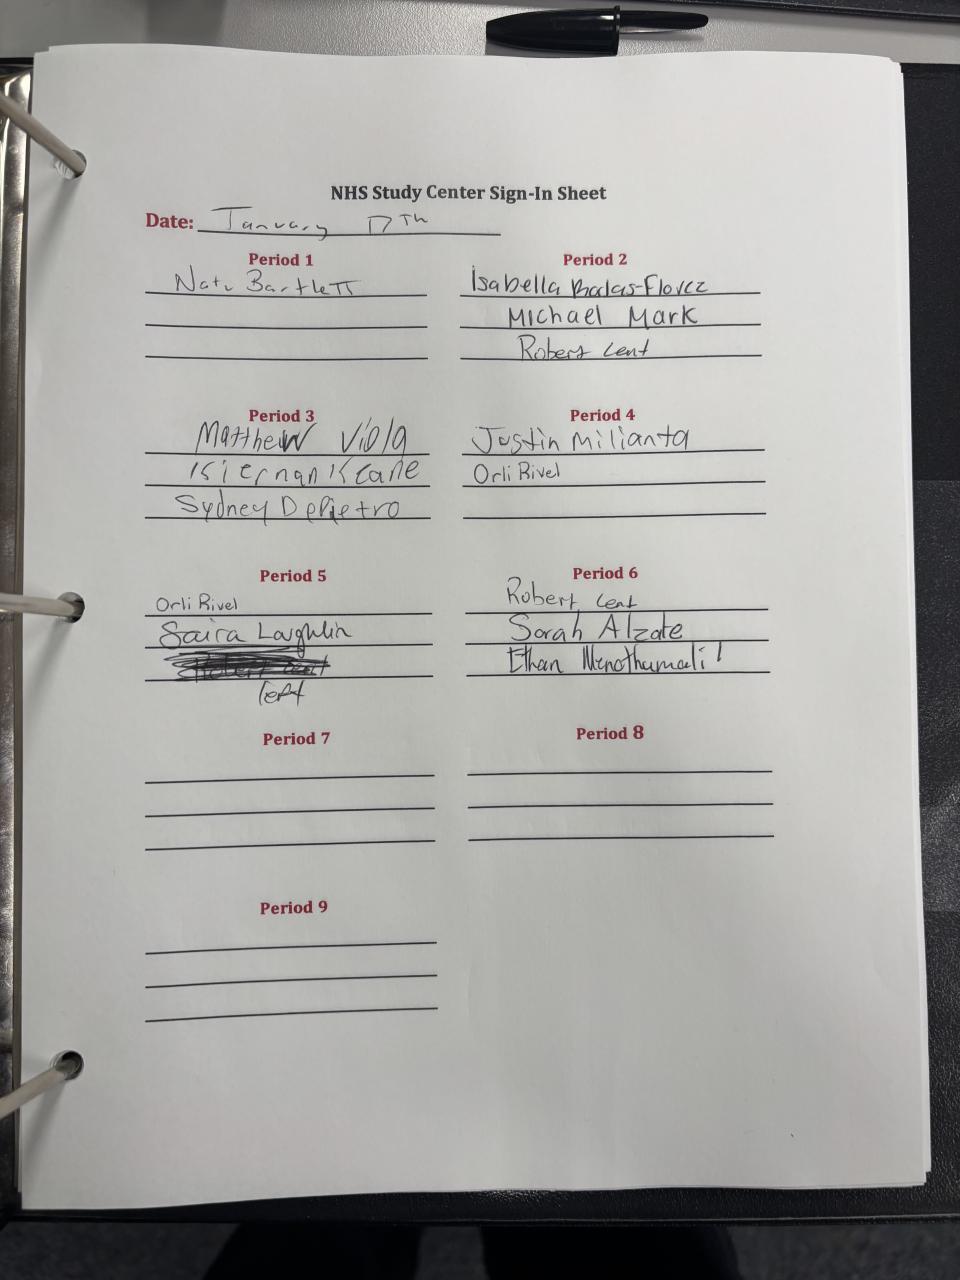 NHS Study Center Sign-In Sheet
Date: January 17th
Period 1
Nate Bartlett
Period 2
Isabella
Michael Mark
Robert Lent
Period 3
Matthew Viola
Kiernan Keane
Sydney DePietro
Period 4
Justin Milianta
Orli Rivel
Period 5
Orli Rivel
Saira Laughlin
Robert Lent
left
Period 6
Robert Lent
Sarah Alzate
Ethan
Period 7
Period 8
Period 9